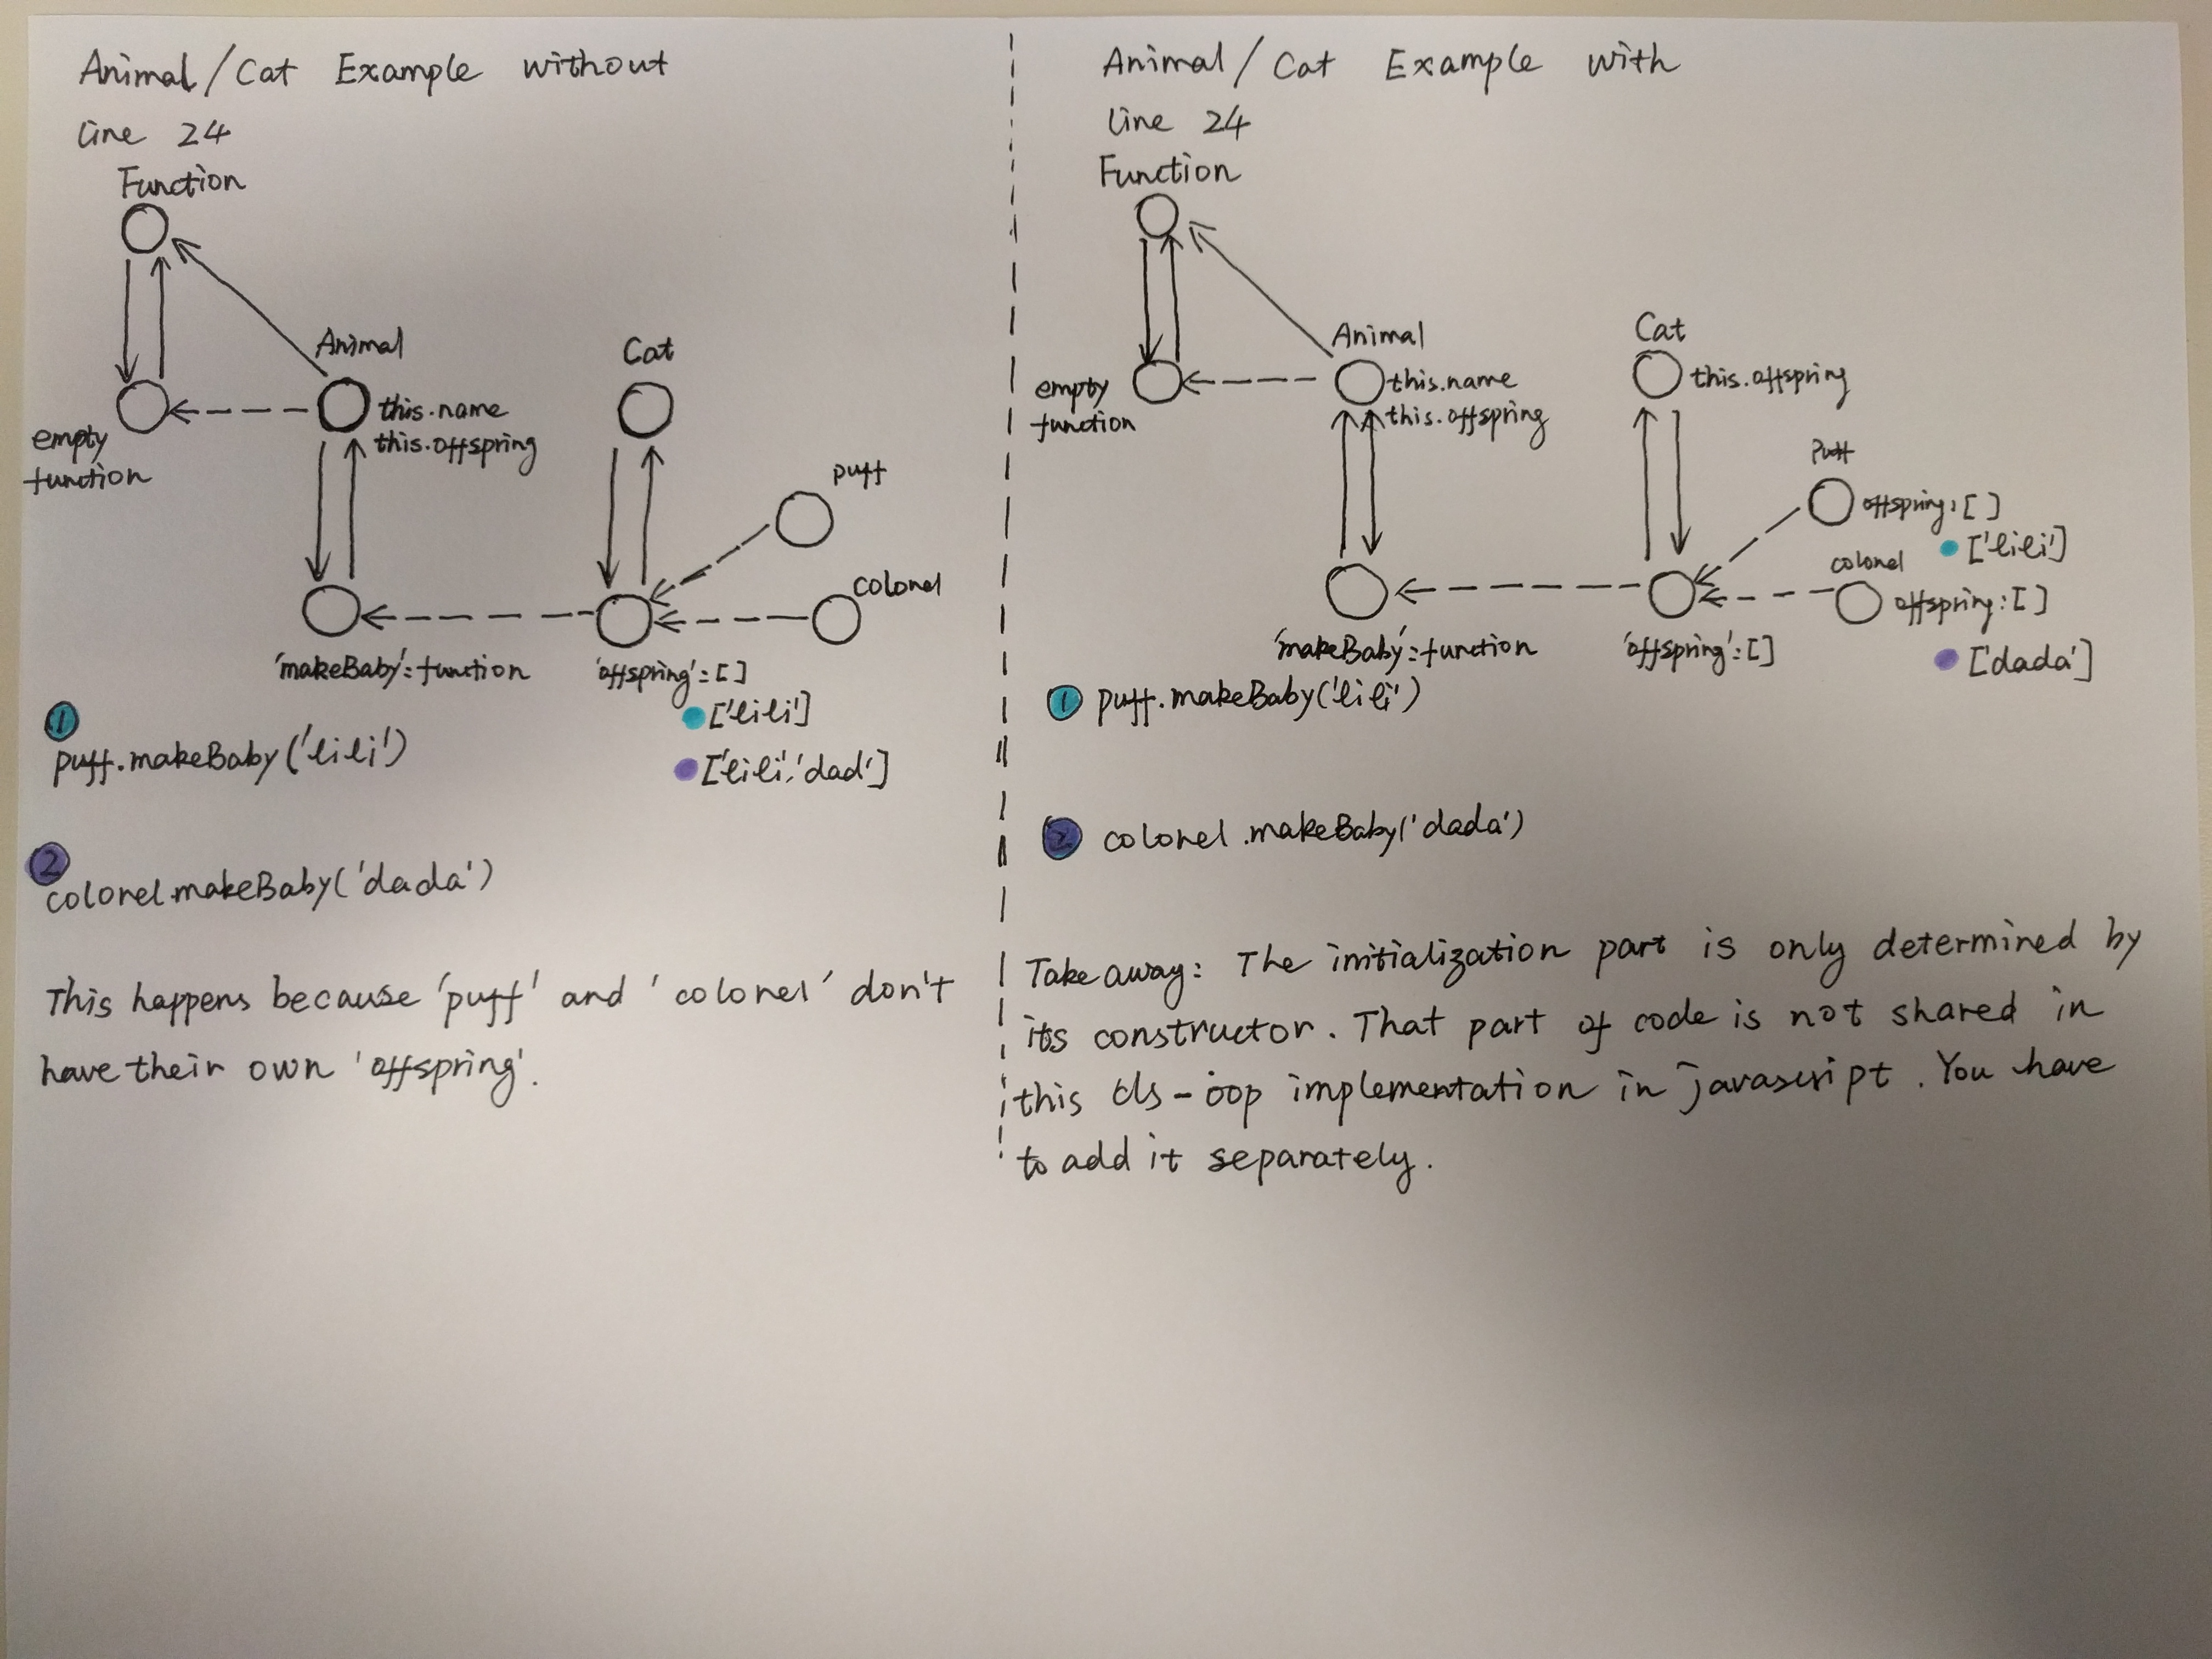 Animal/Cat Example without
line 24
Function
Animal
Cat
this.name
this.offspring
empty
function
puff
colonel
'makeBaby':function
'offspring':[]
['lili']
['lili','dad']
1
puff.makeBaby('lili')
2
colonel.makeBaby('dada')
This happens because 'puff' and 'colonel' don't
have their own 'offspring'.
Animal/Cat Example with
line 24
Function
Animal
Cat
this.name
this.offspring
this.offspring
empty
function
Puff
offspring:[]
['lili']
colonel
offspring:[]
['dada']
'makeBaby':function
'offspring':[]
1 puff.makeBaby('lili')
2 colonel.makeBaby('dada')
Take away: The initialization part is only determined by
its constructor. That part of code is not shared in
this cls-oop implementation in javascript. You have
to add it separately.